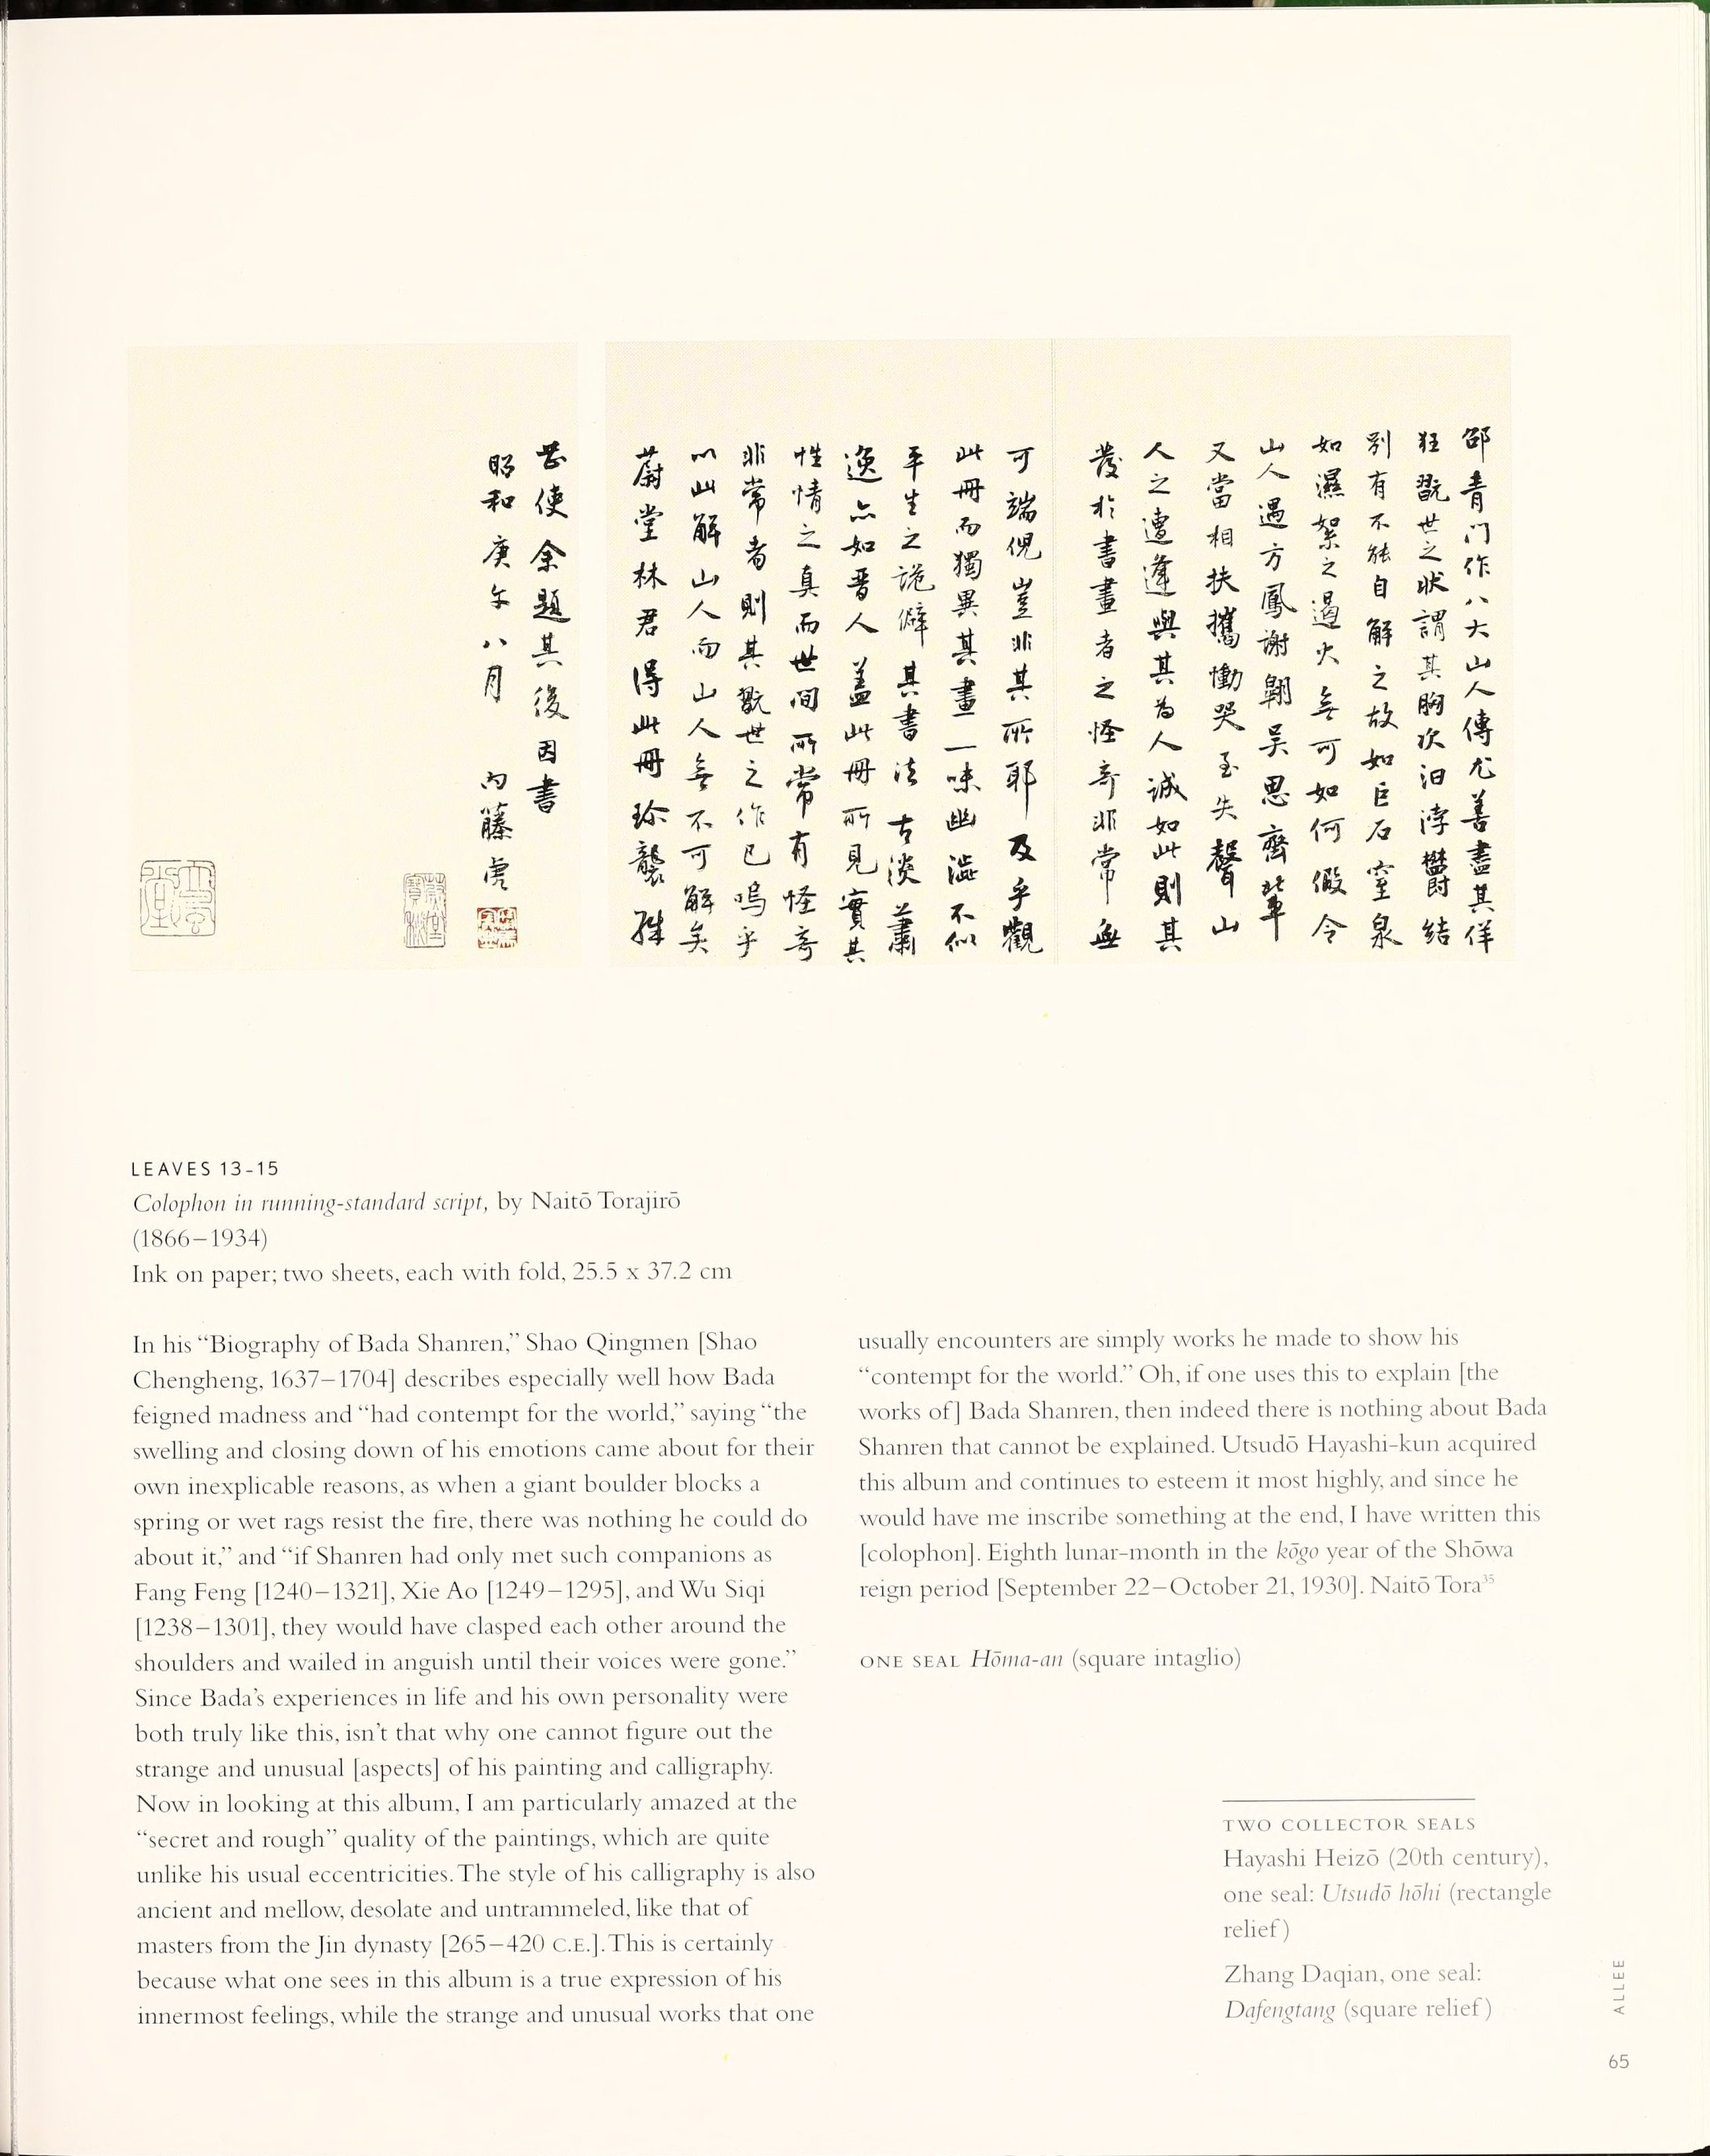 邵青门作八大山人傳尤善盡其佯
狂翫世之狀謂其胸次汩浡鬱結
別有不能自解之故如巨石窒泉
如濕絮之遏火無可如何假令
山人遇方鳳謝翱吳思齊輩
又當相扶攜慟哭至失聲山
人之遭逢與其為人誠如此則其
發於書畫者之怪奇非常無
可端倪豈非其所耶及乎觀
此冊而獨異其畫一味幽澁不似
平生之詭僻其書法古淡蕭
逸亦如晋人蓋此冊所見實其
性情之真而世間所常有怪奇
非常者則其翫世之作已嗚乎
以此解山人而山人無不可解矣
蔚堂林君得此冊珍襲殊
甚使余題其後因書
昭和庚午八月 内藤虎
蔚堂寶秘
大風堂
LEAVES 13-15
Colophon in running-standard script, by Naitō Torajirō
(1866–1934)
Ink on paper; two sheets, each with fold, 25.5 x 37.2 cm
In his “Biography of Bada Shanren,” Shao Qingmen [Shao
Chengheng, 1637–1704] describes especially well how Bada
feigned madness and “had contempt for the world,” saying “the
swelling and closing down of his emotions came about for their
own inexplicable reasons, as when a giant boulder blocks a
spring or wet rags resist the fire, there was nothing he could do
about it,” and “if Shanren had only met such companions as
Fang Feng [1240–1321], Xie Ao [1249–1295], and Wu Siqi
[1238–1301], they would have clasped each other around the
shoulders and wailed in anguish until their voices were gone.”
Since Bada’s experiences in life and his own personality were
both truly like this, isn’t that why one cannot figure out the
strange and unusual [aspects] of his painting and calligraphy.
Now in looking at this album, I am particularly amazed at the
“secret and rough” quality of the paintings, which are quite
unlike his usual eccentricities. The style of his calligraphy is also
ancient and mellow, desolate and untrammeled, like that of
masters from the Jin dynasty [265–420 C.E.]. This is certainly
because what one sees in this album is a true expression of his
innermost feelings, while the strange and unusual works that one
usually encounters are simply works he made to show his
“contempt for the world.” Oh, if one uses this to explain [the
works of] Bada Shanren, then indeed there is nothing about Bada
Shanren that cannot be explained. Utsudō Hayashi-kun acquired
this album and continues to esteem it most highly, and since he
would have me inscribe something at the end, I have written this
[colophon]. Eighth lunar-month in the kōgo year of the Shōwa
reign period [September 22–October 21, 1930]. Naitō Tora35
ONE SEAL Hōma-an (square intaglio)
TWO COLLECTOR SEALS
Hayashi Heizō (20th century),
one seal: Utsudō hōhi (rectangle
relief)
Zhang Daqian, one seal:
Dafengtang (square relief)
ALLEE
65